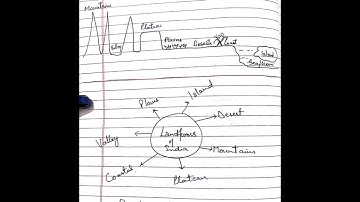 Mountains
Plateau
Valley
Plains
Desert
Island
Island
Plains
Desert
Landforms
of
India
Valley
Mountains
Coastal
Plateau